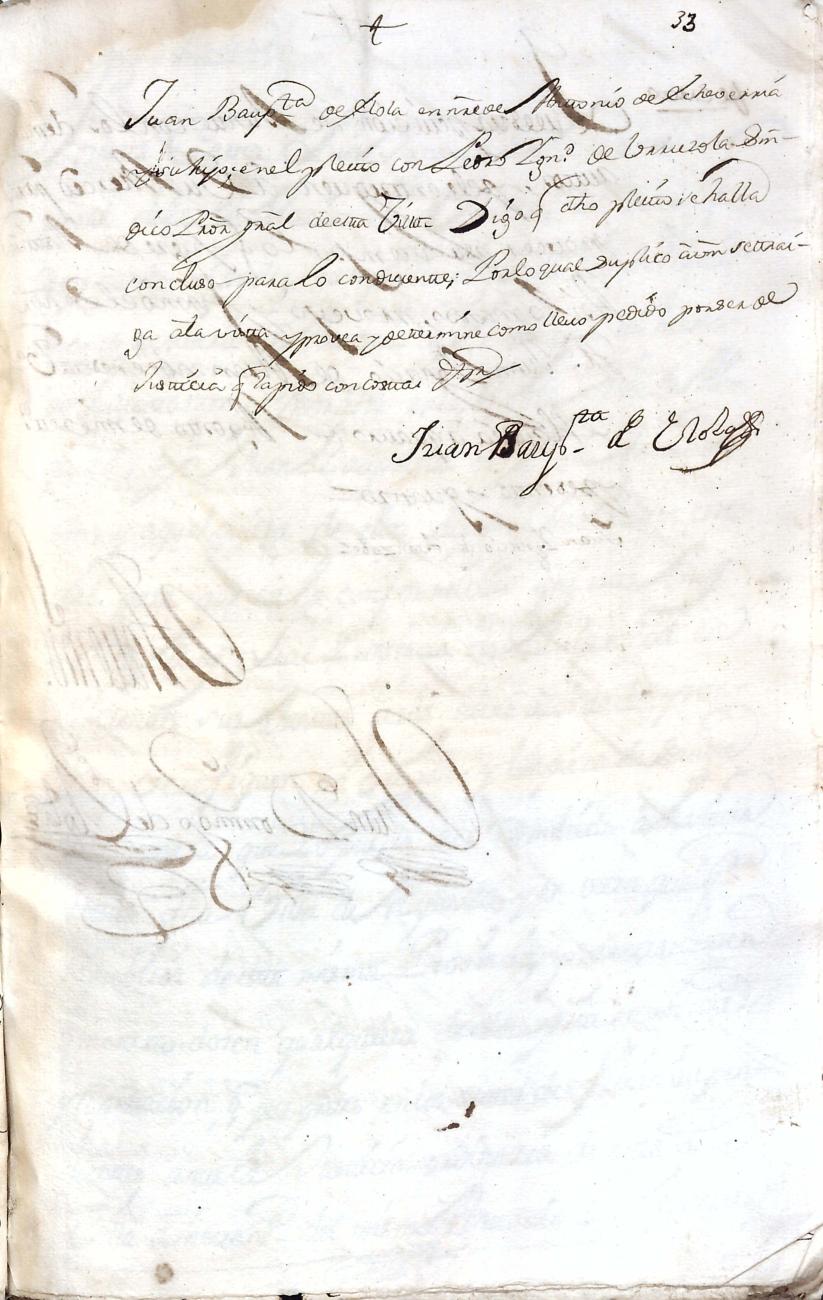 33
Juan Baupta de Elola en nre de Antonio de Echeverria
y su hijo; en el pleito con Pedro Ygno de Urruzola Sin-
dico Pror gñal de esta Villa Digo q dho pleito se halla
concluso para lo conducente; Por lo qual Suplico a Vm se trai-
ga a la vista y provea y determine como llevo pedido por ser de
Justicia q la pido con costas
Juan Baupta de Elola